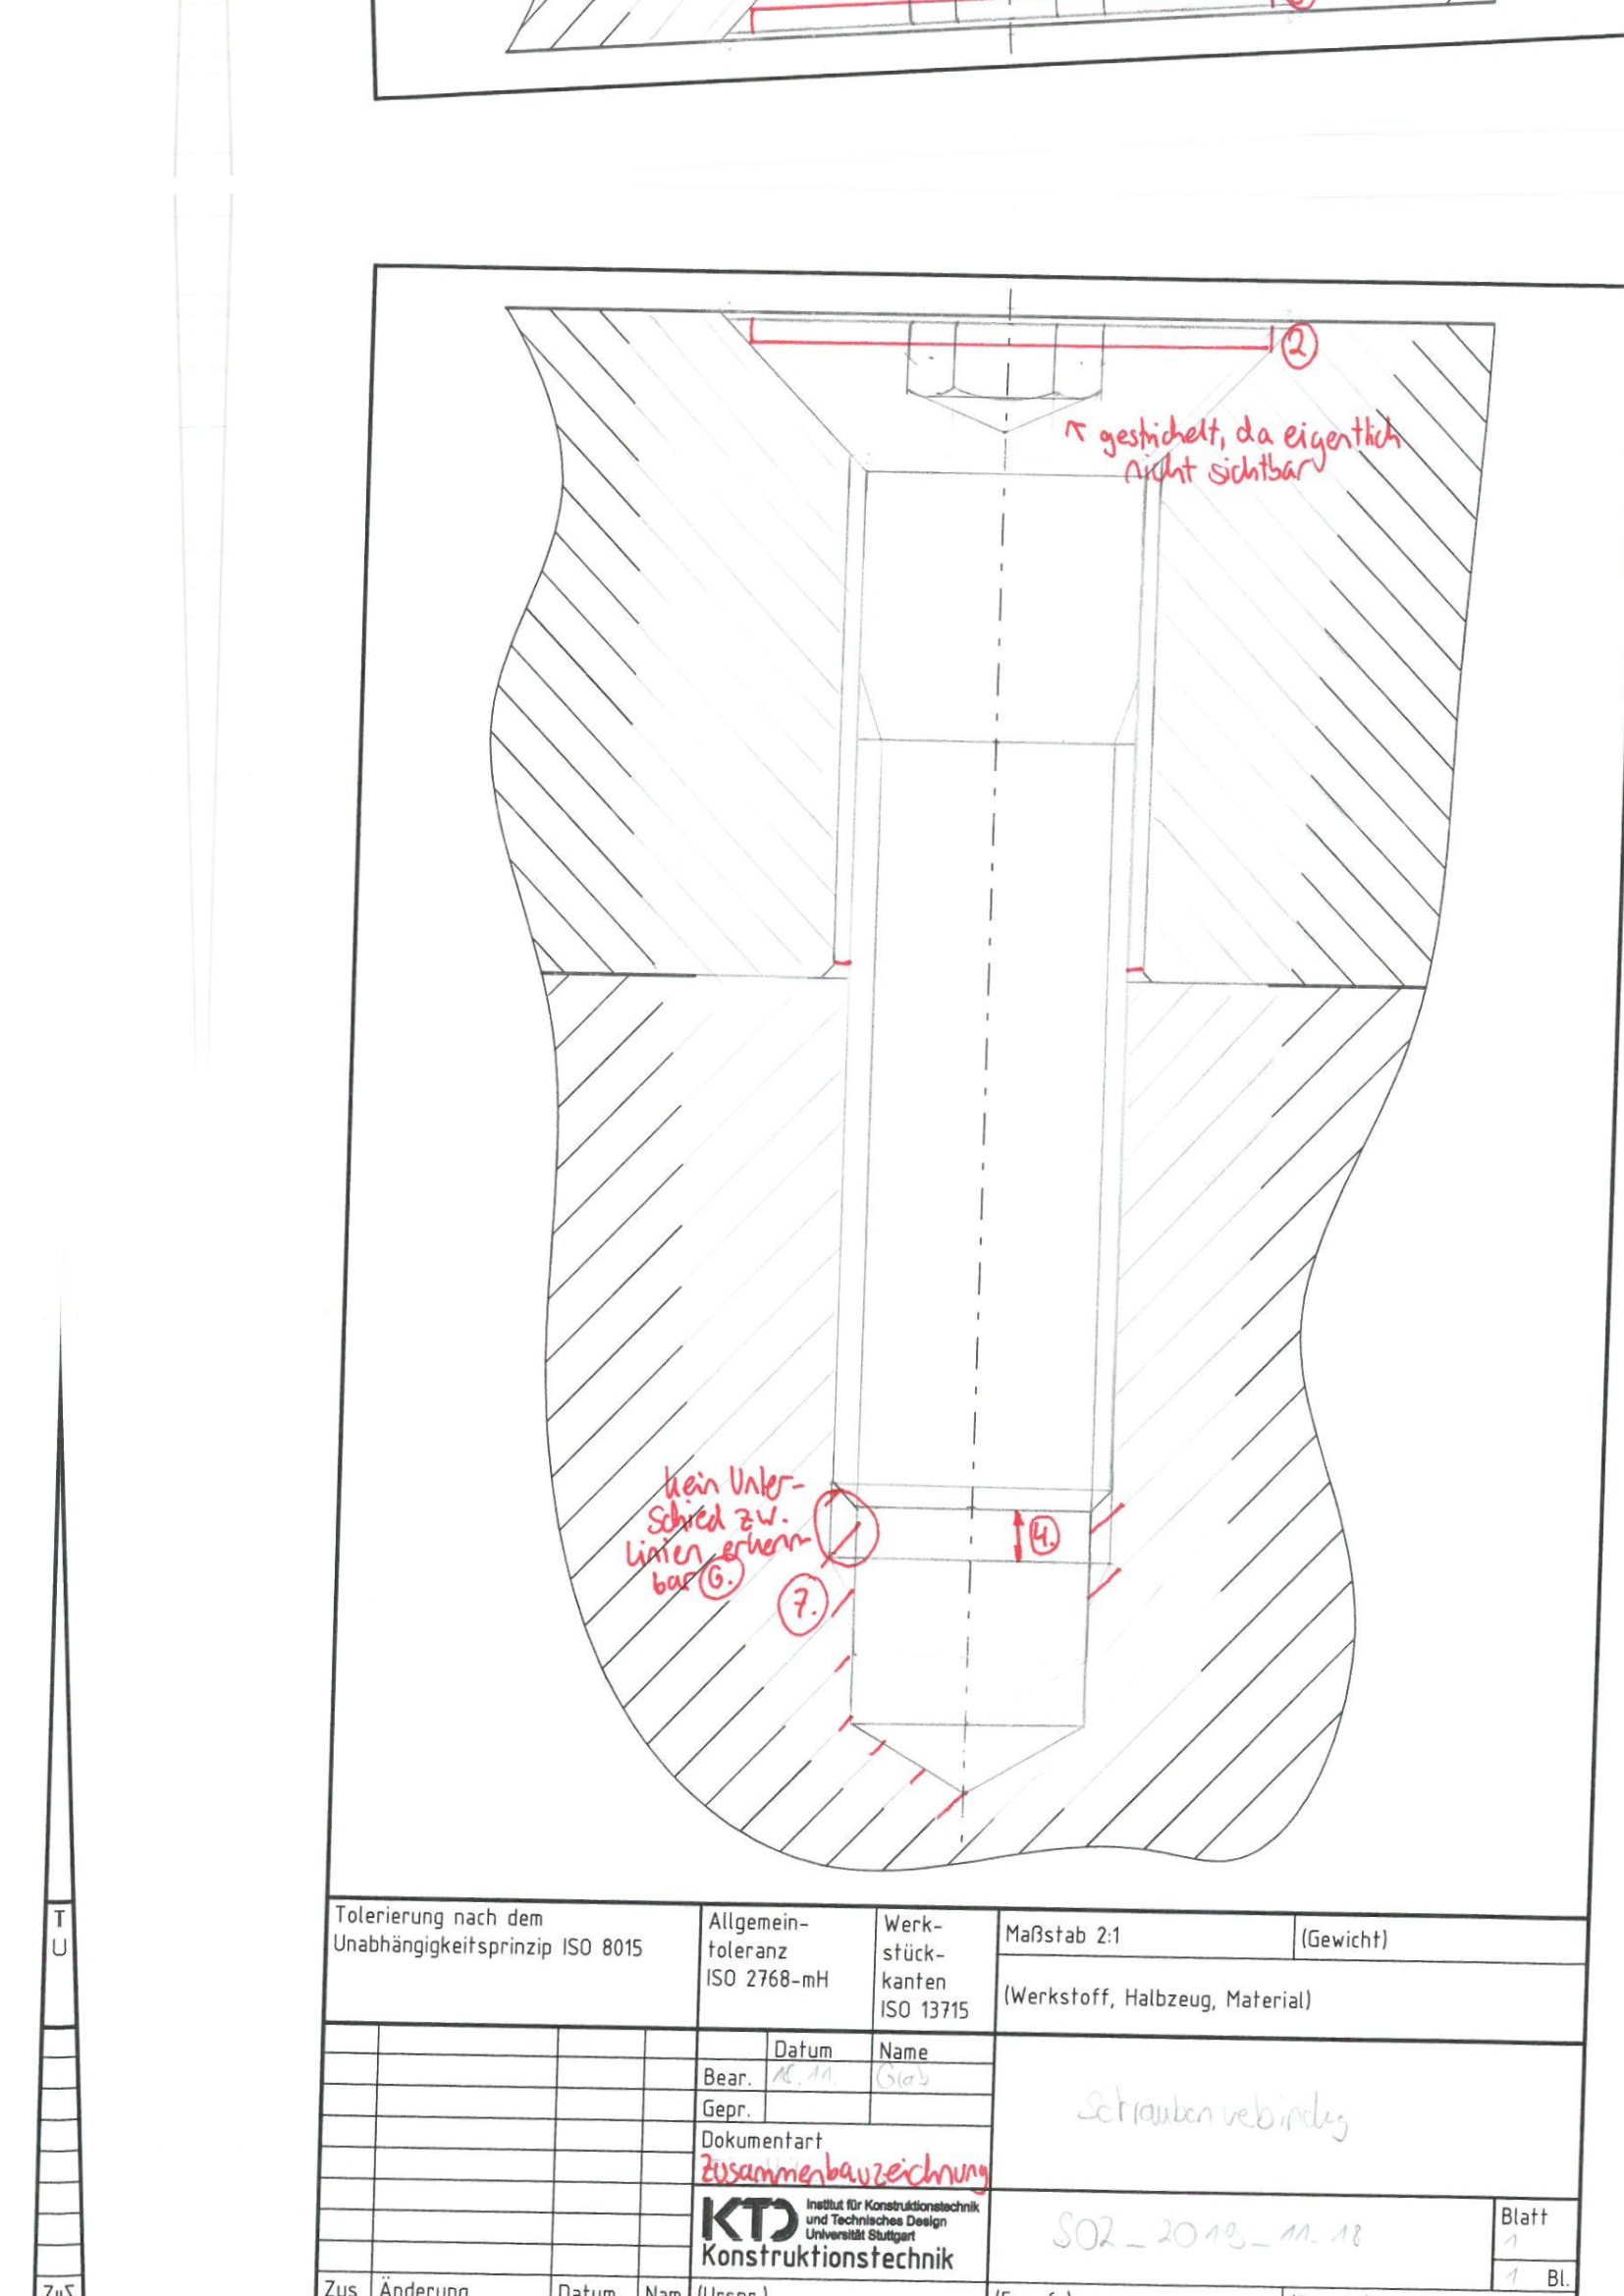 2
↖ gestrichelt, da eigentlich
nicht sichtbar
kein Unter-
schied zw.
linien erkenn
bar 6.
4.
7.
T
U
Tolerierung nach dem
Unabhängigkeitsprinzip ISO 8015
Allgemein-
toleranz
ISO 2768-mH
Werk-
stück-
kanten
ISO 13715
Maßstab 2:1
(Gewicht)
(Werkstoff, Halbzeug, Material)
Datum Name
Bear. 18.11.
Gepr.
Dokumentart
Zusammenbauzeichnung
KTD Institut für Konstruktionstechnik
und Technisches Design
Universität Stuttgart
Konstruktionstechnik
S02_2019_11_18
Blatt
1
1 Bl.
Zus Änderung Datum Nam